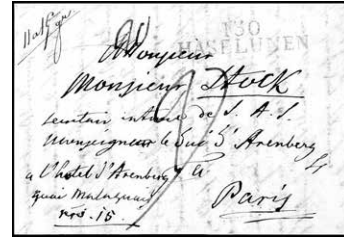 130
HASELUNEN
A Monsieur
Monsieur Stock
Secretaire intime de S. A. S.
Monseigneur le Duc d'Arenberg
a l'hotel d'Arenberg
quai Malaquais
nro. 15
Paris